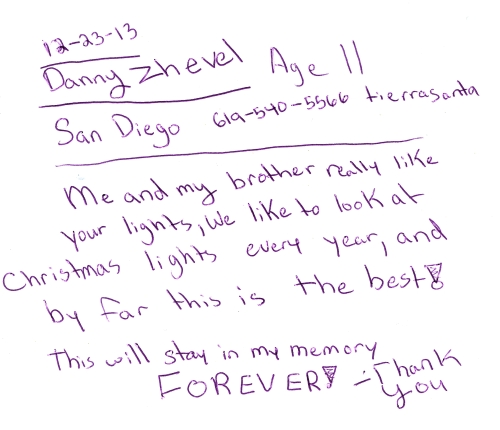 12-23-13
Danny Zhevel Age 11
San Diego 619-540-5566 tierrasanta
Me and my brother really like
your lights, We like to look at
Christmas lights every year, and
by far this is the best!
This will stay in my memory
FOREVER! -Thank
You